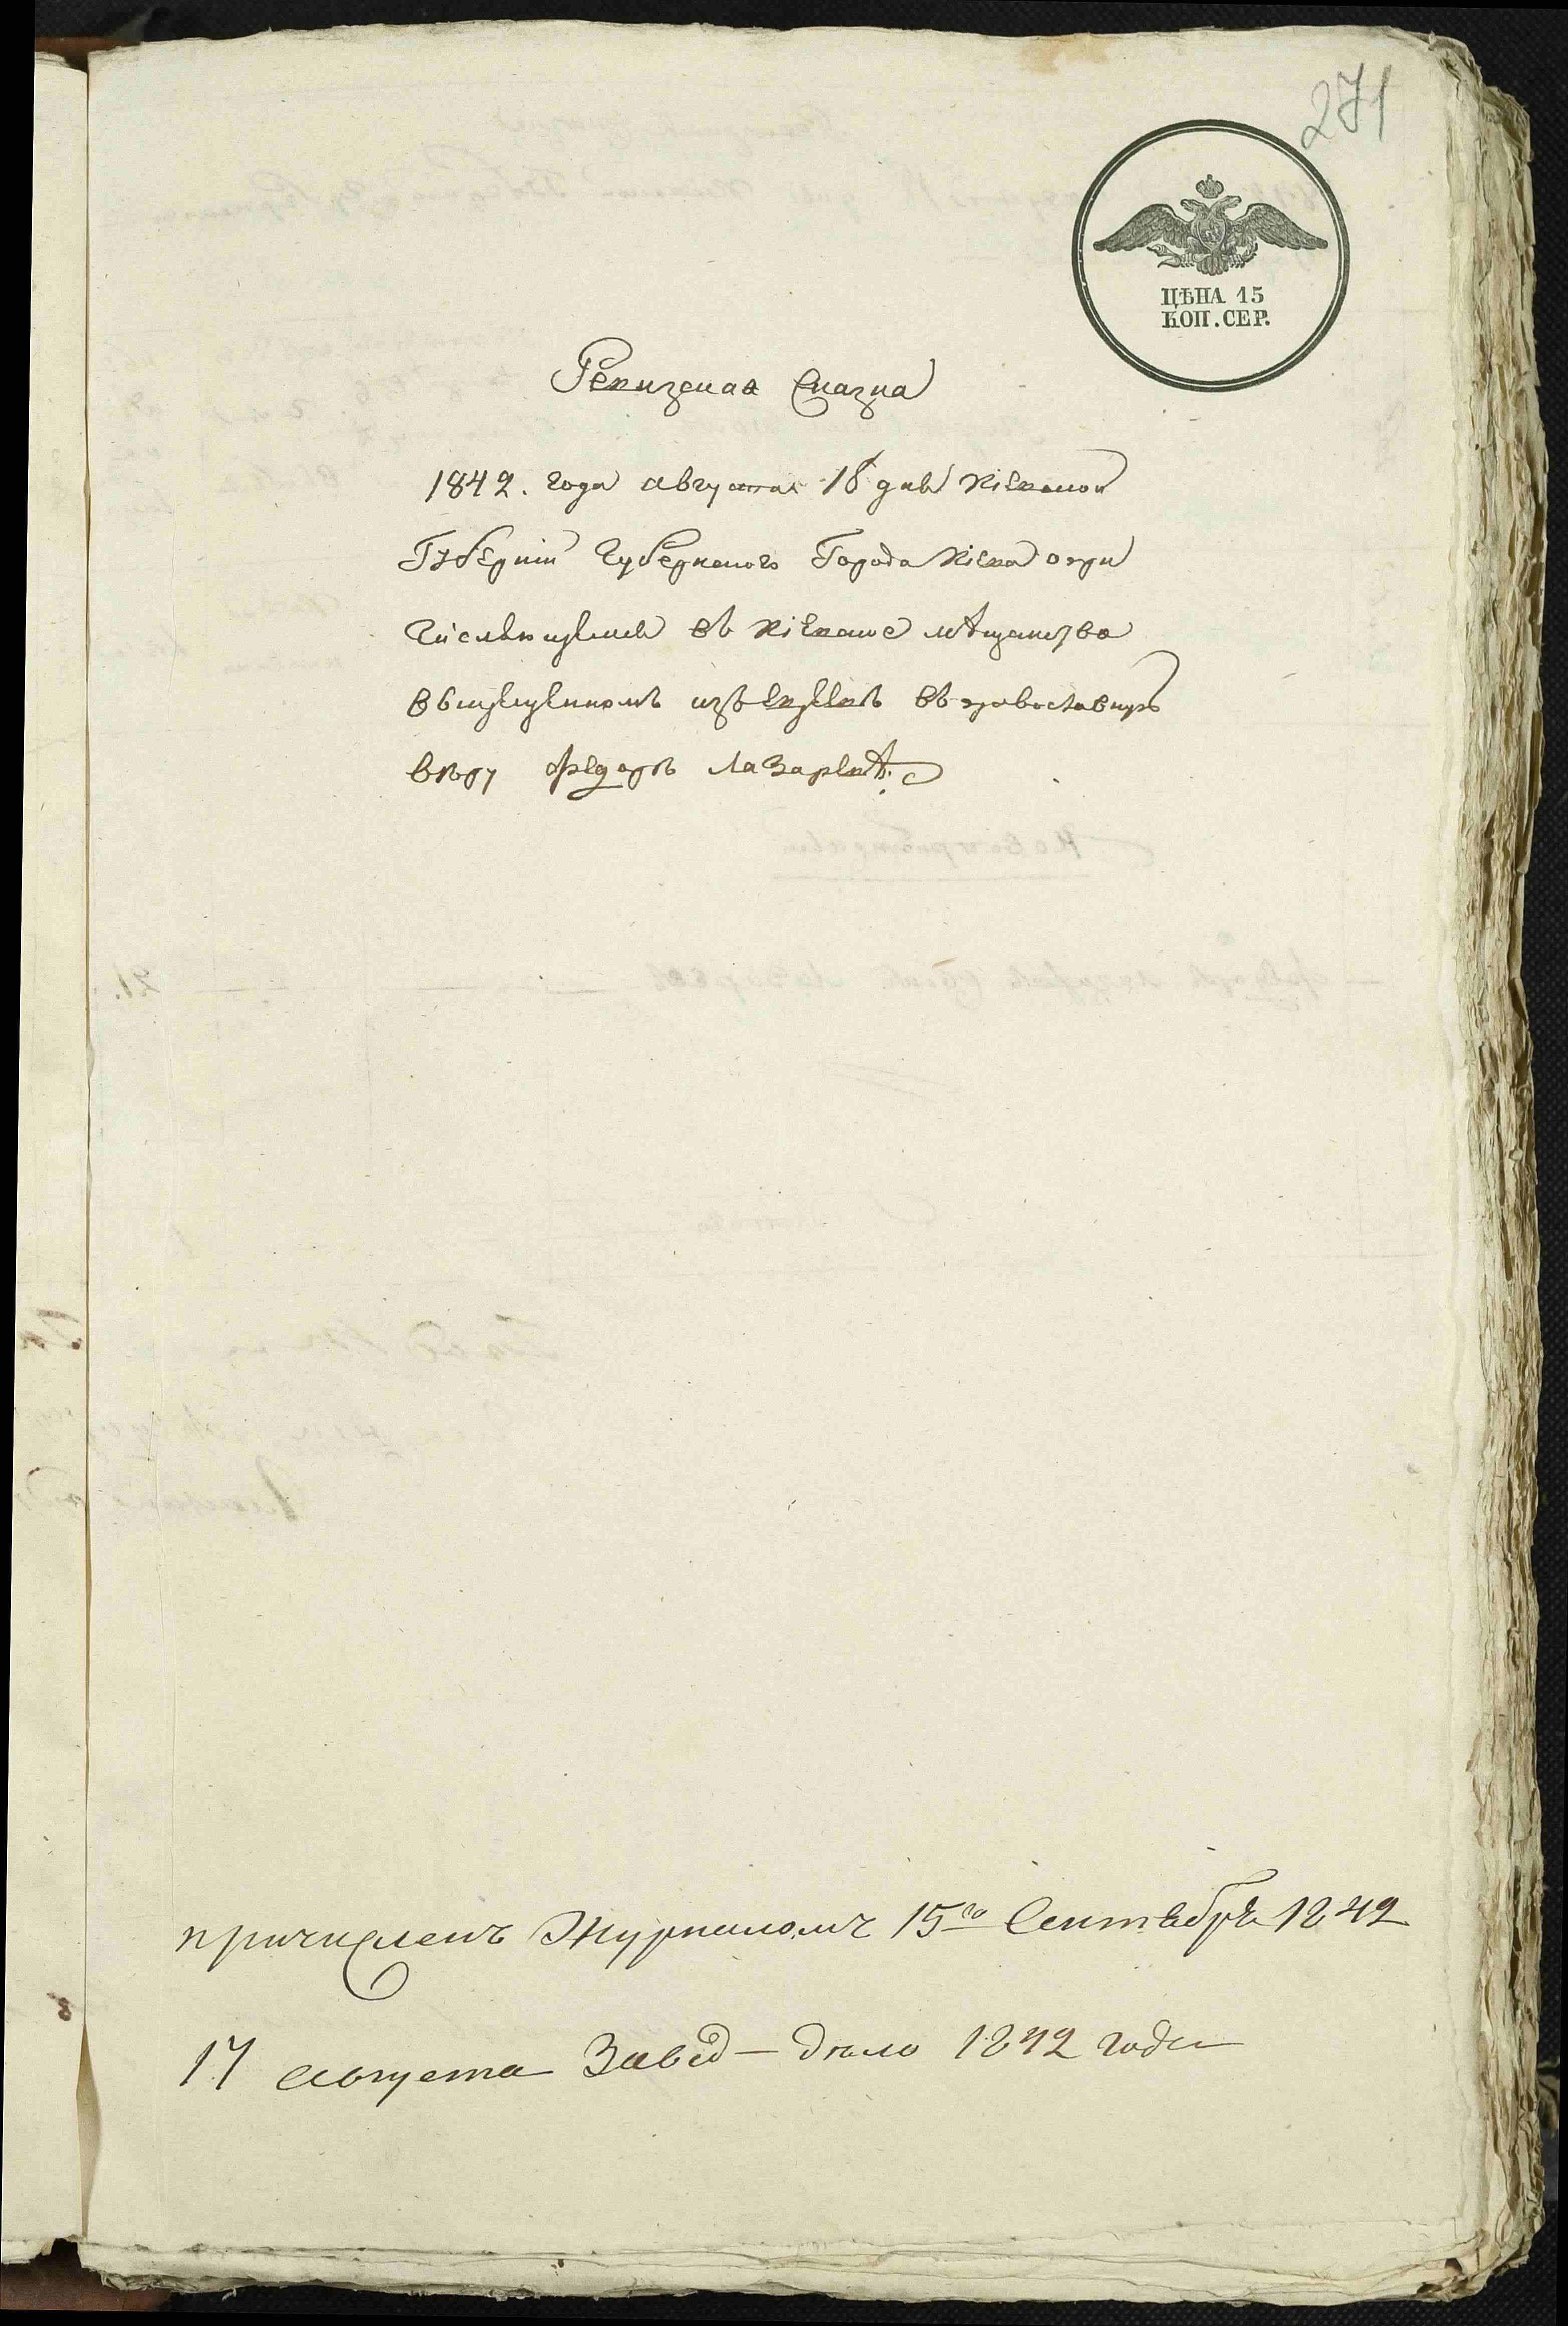 271
ЦѢНА 15
КОП. СЕР.
Ревизская Сказка
1842. года августа 18 дня Кіевской
Губерніи Губернского Города Кіева о при
числяющемся въ Кіевское мѣщанство
выкрещенномъ изъ евреевъ въ православную
вѣру Федоръ Лазаревѣ.
причисленъ Журналомъ 15го Сентября 1842
17 августа Завед – дѣло 1842 года